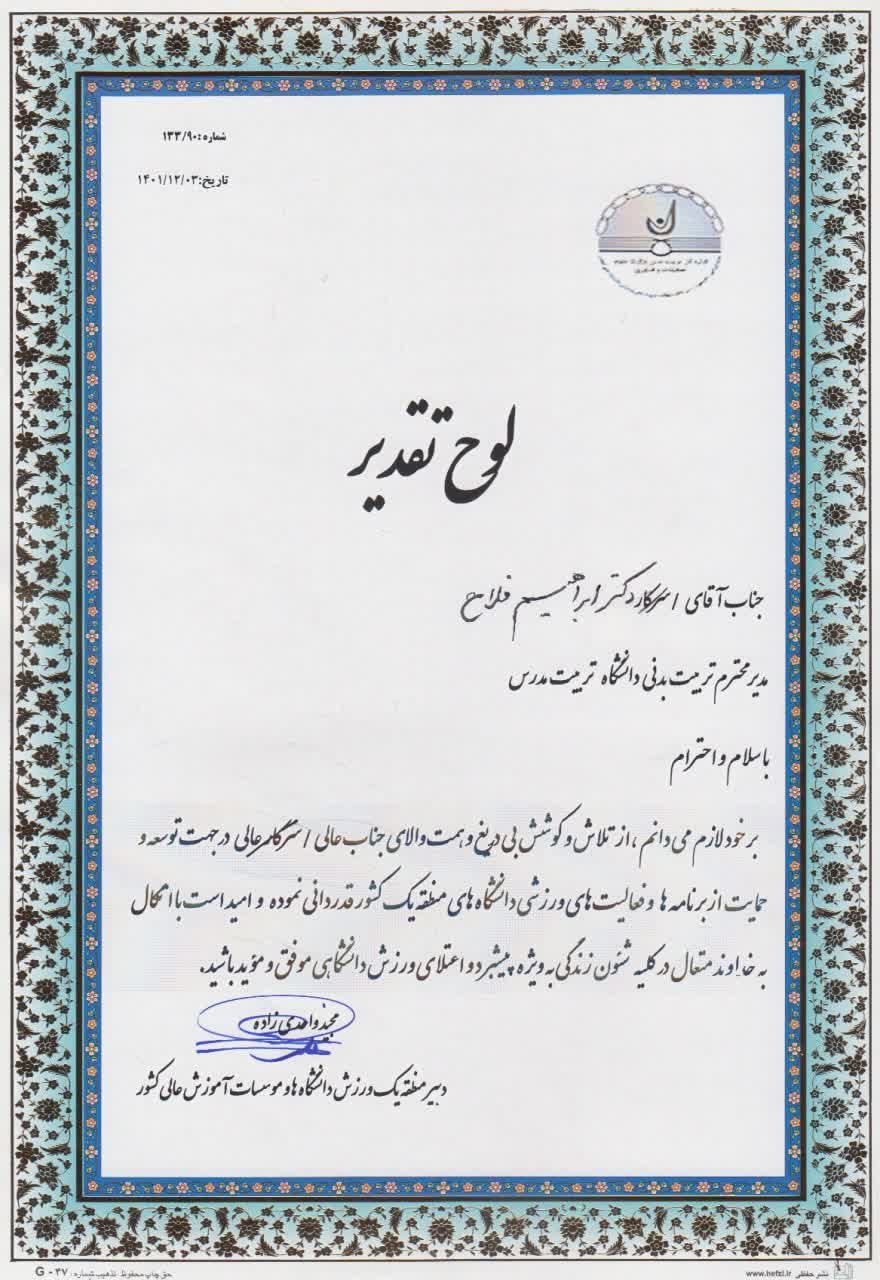 شماره: ۱۳۳/۹۰
تاریخ: ۱۴۰۱/۱۲/۰۳
لوح تقدیر
جناب آقای / سرکار دکتر ابراهیم فلاح
مدیر محترم تربیت بدنی دانشگاه تربیت مدرس
با سلام و احترام
بر خود لازم می دانم ، از تلاش و کوشش بی دریغ و همت والای جناب عالی / سرکار عالی در جهت توسعه و
حمایت از برنامه ها و فعالیت های ورزشی دانشگاه های منطقه یک کشور قدردانی نموده و امید است با اتکال
به خداوند متعال در کلیه شئون زندگی به ویژه پیشبرد و اعتلای ورزش دانشگاهی موفق و مؤید باشید.
مجید واحدی زاده
دبیر منطقه یک ورزش دانشگاه ها و موسسات آموزش عالی کشور
G - ۴۷ حق چاپ محفوظ. تذهیب شماره:
نشر حفظی www.hefzi.ir